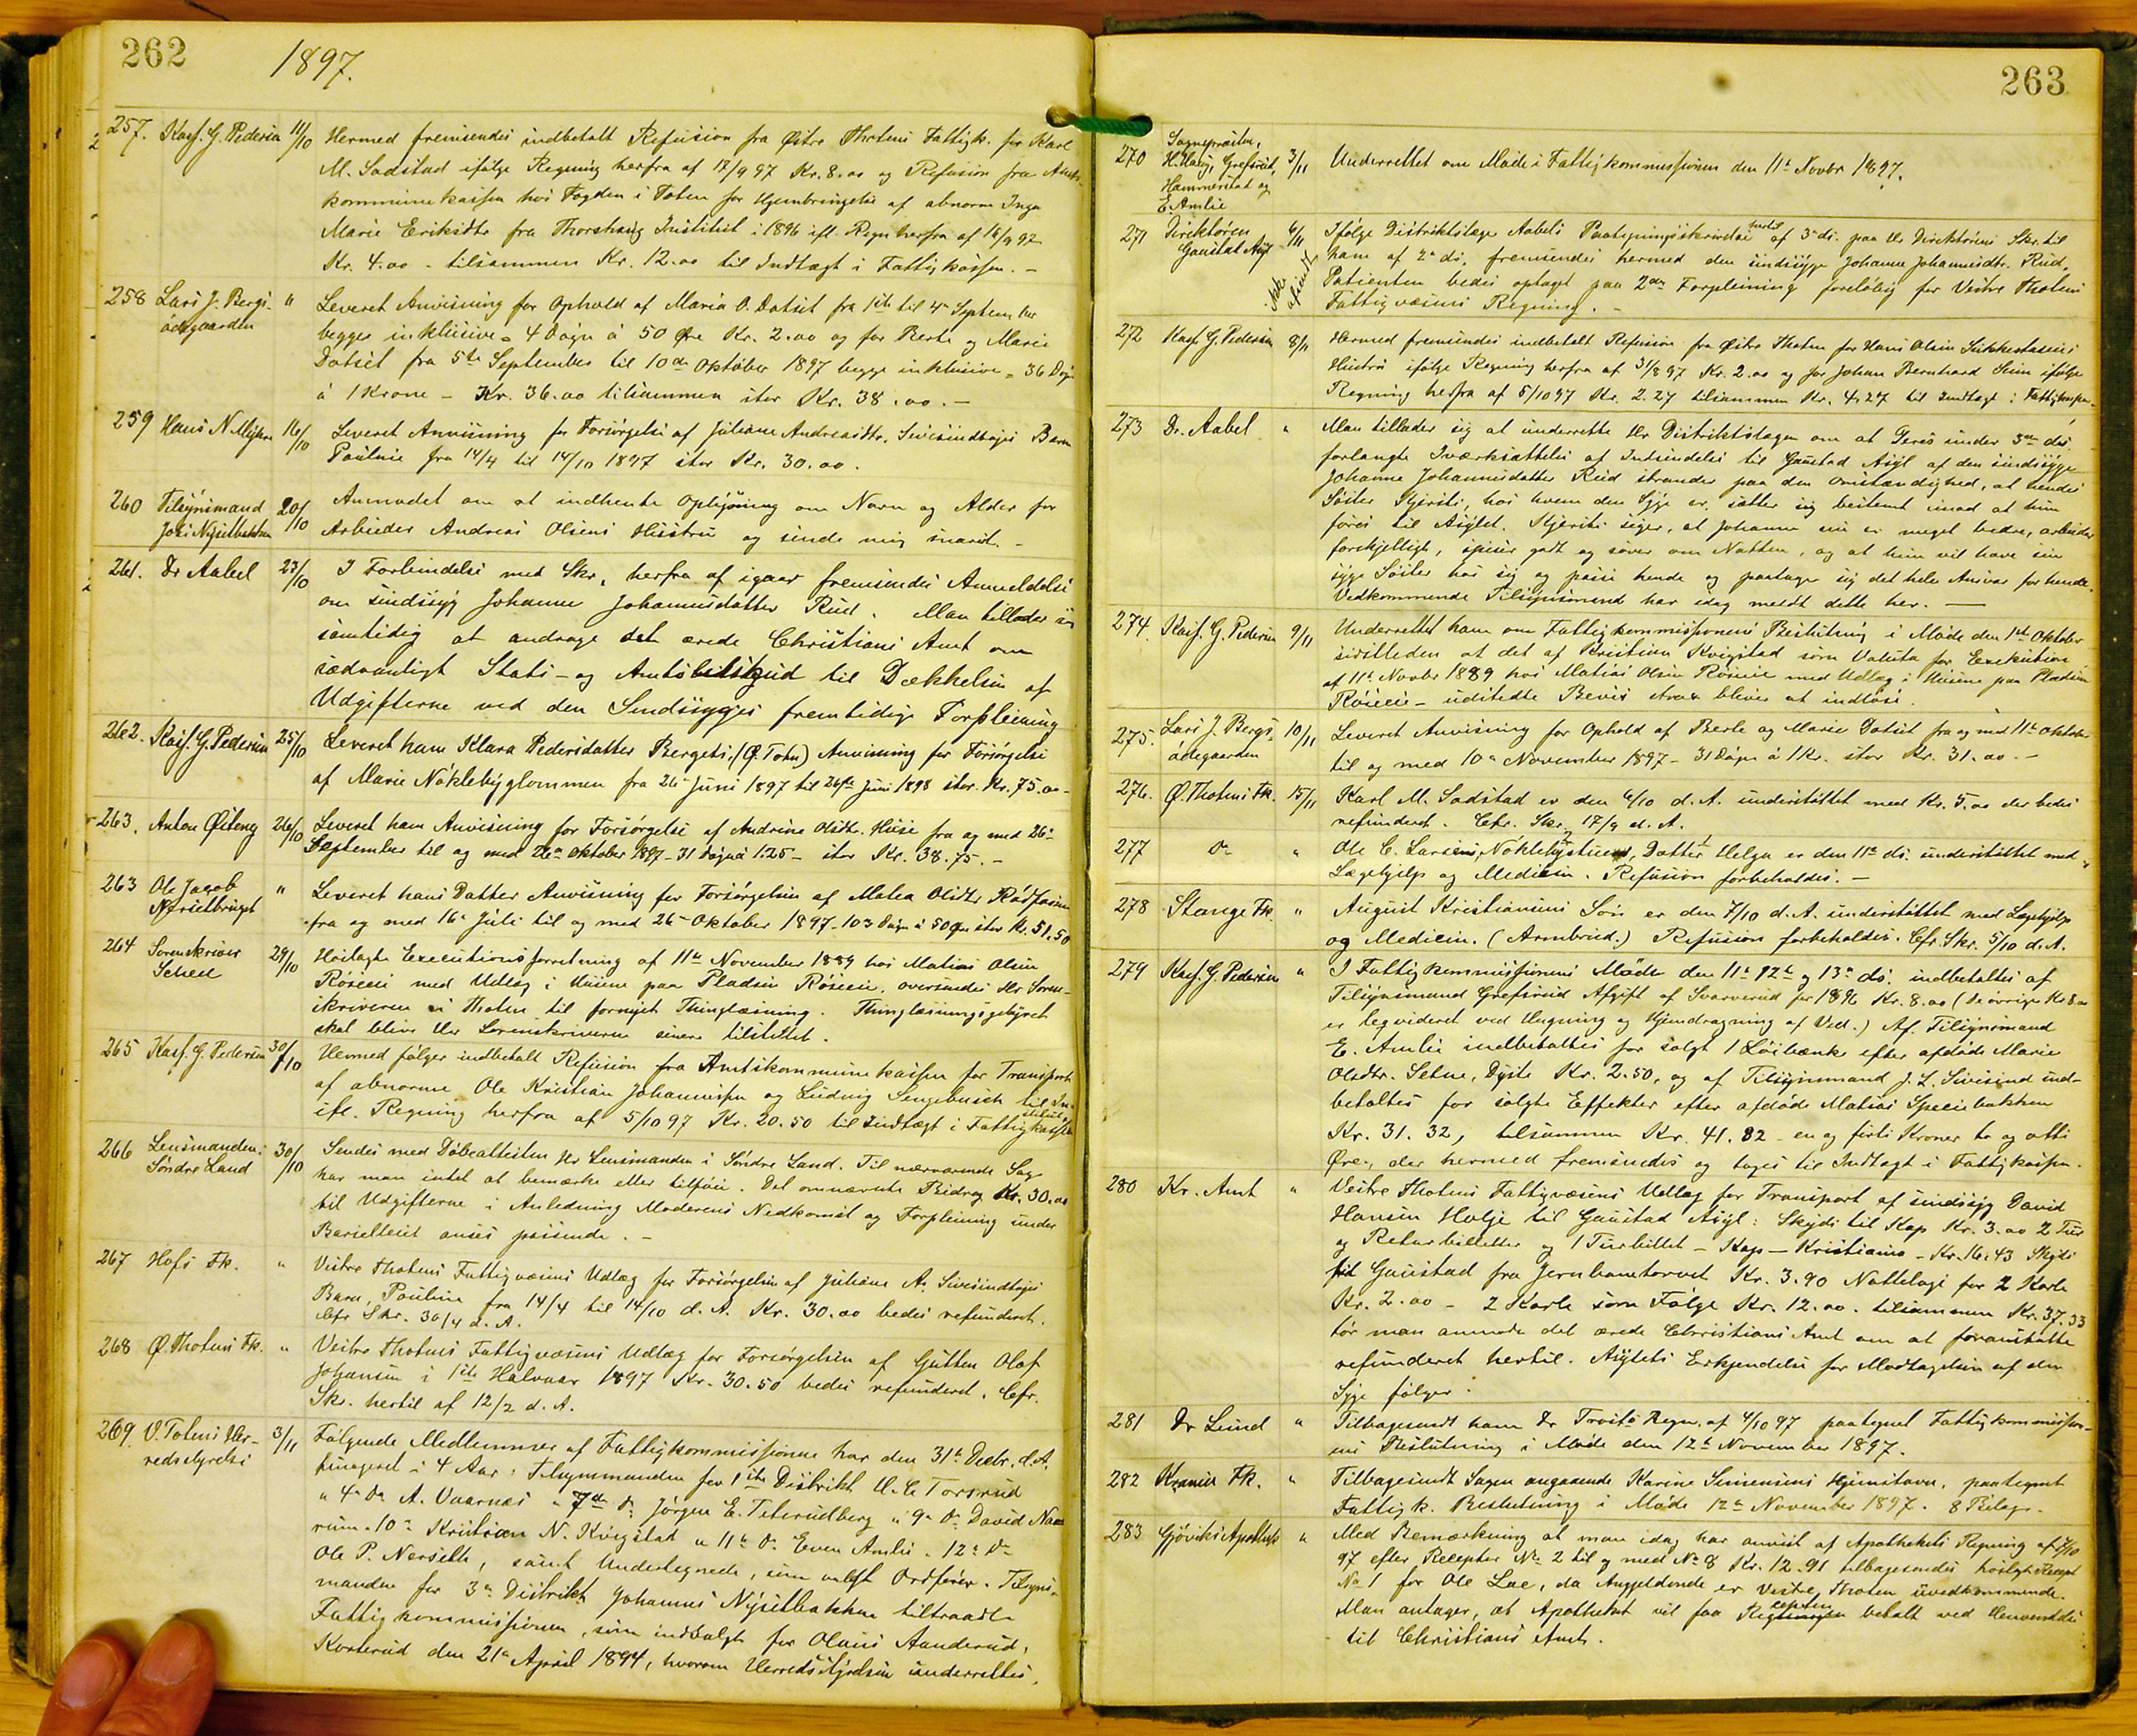 262 1897.
257. Kasf. G. Pedersen 11/10 Hermed fremsendes indbetalt Refusion fra Østre Thotens Fattigk. for Karl
M. Sadstad ifølge Regning herfra af 17/9 97 Kr. 8.00 og Refusion fra Amts-
kommunekassen hos Fogden i Toten for Hjembringelse af abnorm Inga
Marie Eriksdtr fra Thorshaug Institut i 1896 ifl. Regn herfra af 16/9 97
Kr. 4.00 - tilsammen Kr. 12.00 til Indtægt i Fattigkassen. -
258 Lars J. Bergs- " Leveret Anvisning for Ophold af Maria O. Dotset fra 1ste til 4de September
ødegaarden begge inklusive = 4 Døgn à 50 Øre Kr. 2.00 og for Berte og Marie
Dotset fra 5te September til 10de Oktober 1897 begge inklusive = 36 Døgn
à 1 Krone - Kr. 36.00 tilsammen stor Kr. 38.00. -
259 Hans N. 16/10 Leveret Anvisning for Forsørgelse af Juliane Andreasdtr. Sivesindhages Barn
Pauline fra 14/4 til 14/10 1897 stor Kr. 30.00.
260 Tilsynsmand 20/10 Anmodet om at indhente Oplysning om Navn og Alder for
Johs Nysetbakken Arbeider Andreas Olsens Hustru og sende mig snarest. -
261. Dr Aabel 23/10 I Forbindelse med Skr. herfra af igaar fremsendes Anmeldelse
om sindssyg Johanne Johannesdatter Rud. Man tillader sig
samtidig at andrage det ærede Christians Amt om
sædvanligt Stats- og Amtsbidrag til Dækkelsen af
Udgifterne ved den Sindssyges fremtidige Forpleining
262. Kasf. G. Pedersen 25/10 Leveret ham Klara Pedersdatter Bergets (Ø. Toten) Anvisning for Forsørgelse
af Marie Nøklebyglommen fra 26 Juni 1897 til 26de Juni 1898 stor Kr. 75.00 -
263. Anton Østeng 26/10 Leveret ham Anvisning for Forsørgelse af Andrine Olsdtr. Huse fra og med 26de
September til og med 26de Oktober 1897 - 31 Døgn à 1.25 - stor Kr. 38.75. -
263 Ole Jacob " Leveret hans Datter Anvisning for Forsørgelsen af Matea Olsdtr
Nersetbruget fra og med 16de Juli til og med 26de Oktober 1897 - 103 Døgn à 50 Øre stor Kr. 51.50
264 Sorenskriver 29/10 Heilagte Executionsforretning af 11te November 1889 hos Matias Olsen
Scheel Røseie med Udlæg i Husene paa Pladsen Røseie, oversendes Hr Soren-
skriveren i Thoten til fornyet Thinglæsning. Thinglæsningsgebyret
skal blive Hr Sorenskriveren senere tilstillet.
265 Kasf. G. Pedersen 30/10 Hermed følger indbetalt Refusion fra Amtskommunekassen for Transport
af abnorme Ole Kristian Johannessen og Ludvig Sengebusch til In-
stitut
ifl. Regning herfra af 5/10 97 Kr. 20.50 til Indtægt i Fattigkassen
266 Lensmanden i 30/10 Sendes med Døbeattesten Hr Lensmanden i Søndre Land. Til nærværende Sag
Søndre Land har man intet at bemærke eller tilføie. Det omnævnte Bidrag Kr. 30.00
til Udgifterne i Anledning Moderens Nedkomst og Forpleining under
Barselleiet anses passende. -
267 Hofs Fk. " Vestre Thotens Fattigvæsens Udlæg for Forsørgelsen af Juliane A. Sivesindhages
Barn, Pauline fra 14/4 til 14/10 d. A. Kr. 30.00 bedes refunderet.
Cfr Skr. 30/4 d. A.
268 Ø. Thotens Fk. " Vestre Thotens Fattigvæsens Udlæg for Forsørgelsen af Gutten Olaf
Johansen i 1ste Halvaar 1897 Kr. 30.50 bedes refunderet. Cfr.
Skr. hertil af 12/2 d. A.
269 V. Totens Her- 3/11 Følgende Medlemmer af Fattigkommissionen har den 31te Decbr. d. A.
redsstyrelse fungeret i 4 Aar: Tilsynmanden for 1ste Distrikt H. C. Torsrud
" 4de do A. Vaarnæs " 7de do Jørgen E. Teterudberg " 9de do David
10de Kristian N. Kvigstad " 11te do Even Amlie. 12te do
Ole P. Nerseth, samt Undertegnede, som valgt Ordfører. Tilsyns-
manden for 3de Distrikt Johannes Nysetbakken tiltraadte
Fattigkommissionen, som indvalgt for Olaus Aanderud,
Korterud den 21de April 1894, hvorom Herredsstyrelsen underrettes.
263
Sognepræsten,
270 H. Hauj, Grefsrud, 3/11 Underrettet om Møde i Fattigkommissionen den 11te Novbr 1897.
Hammerstad og
E. Amlie
271 Direktøren 6/11 Ifølge Distriktslæge Aabels Paategningsskrivelse af 3de ds. paa Hr Direktørens Skr. til
Gaustad Asyl ham af 2de ds. fremsendes hermed den sindssyge Johanne Johannesdtr. Rud.
ikke afsendt Patienten bedes optaget paa 2den Forpleining foreløbig for Vestre Thotens
Fattigvæsens Regning. -
272 Kasf. G. Pedersen 8/11 Hermed fremsendes indbetalt Refusion fra Østre Thoten for Hans Olsen Sukkestadeies
Hustru ifølge Regning herfra af 31/8 97 Kr. 2.00 og for Johan Bernhard ifølge
Regning herfra af 5/10 97 Kr. 2.27 tilsammen Kr. 4.27 til Indtægt i Fattigkassen. -
273 Dr. Aabel " Man tillader sig at underrette Hr Distriktslægen om at Deres under 3de ds.
forlangte Iværksættelse af Indsendelse til Gaustad Asyl af den sindssyge
Johanne Johannesdatter Rud strander paa den Omstændighed, at hendes
Søster Kjersti, hos hvem den Syge er, sætter sig bestemt imod at hun
føres til Asylet. Kjersti siger, at Johanne nu er meget bedre, arbeider
forskjelligt, spiser godt og sover om Natten, og at hun vil have sin
syge Søster hos sig og passe hende og paatager sig det hele Ansvar for hende.
Vedkommende Tilsynsmand har idag meldt dette her. —
274 Kasf. G. Pedersen 9/11 Underrettet ham om Fattigkommissionens Beslutning i Møde den 1ste Oktober
sidstleden at det af Kristian Kvigstad som Valuta for Exekution
af 11te Novbr 1889 hos Matias Olsen Røseie med Udlæg i Husene paa Pladsen
Røseie - udstedte Bevis strax bliver at indløse.
275. Lars J. Bergs- 10/11 Leveret Anvisning for Ophold af Berte og Marie Dotset fra og med 11te Oktober
ødegaarden til og med 10de November 1897 - 31 Døgn à 1 Kr. stor Kr. 31.00. -
276. Ø. Thotens Fk. 15/11 Karl M. Sadstad er den 6/10 d. A. understøttet med Kr. 5.00 der bedes
refunderet. Cfr. Skr. 17/9 d. A.
277 do " Ole C. Larsens, Nøklebystuens, Datter Helga er den 11te ds. understøttet med
Lægehjelp og Medicin. Refusion forbeholdes. -
278 Stange Fk. " August Kristiansens Søn er den 7/10 d. A. understøttet med Lægehjelp
og Medicin. (Armbrud.) Refusion forbeholdes. Cfr. Skr. 5/10 d. A.
279 Kasf. G. Pedersen " I Fattigkommissionens Møde den 11te 12te og 13de ds. indbetaltes af
Tilsynsmand Grefsrud Afgift af Svarverud for 1896 Kr. 8.00 (De øvrige Kr 8.00
er leqvideret ved Hugning og Hjemdragning af Ved.) Af Tilsynsmand
E. Amlie indbetaltes for solgt 1 Løibænk efter afdøde Marie
Olsdtr. Setne, Dyste Kr. 2.50, og af Tilsynsmand J. L. Sivesind ind-
betaltes for solgte Effekter efter afdøde Matias Speciebakken
Kr. 31.32, tilsammen Kr. 41.82 - en og firti Kroner to og otti
Øre, der hermed fremsendes og tages til Indtægt i Fattigkassen.
280 Kr. Amt " Vestre Thotens Fattigvæsens Udlæg for Transport af sindssyg David
Hansen Holje til Gaustad Asyl: Skyds til Kap Kr. 3.00 2 Tur
og Returbilletter og 1 Turbillet - Kap - Kristiania - Kr. 16.43 Skyds
til Gaustad fra Jernbanetorvet Kr. 3.90 Natteloge for 2 Karle
Kr. 2.00 - 2 Karle som Følge Kr. 12.00. tilsammen Kr. 37.33
tør man anmode det ærede Christians Amt om at foranstalte
refunderet hertil. Asylets Erkjendelse for Modtagelsen af den
Syge følger.
281 Dr Lund " Tilbagesendt ham Dr Regn. af 4/10 97 paategnet Fattigkommission-
ens Beslutning i Møde den 12te November 1897.
282 Fk. " Tilbagesendt Sagen angaaende Karine Simensens Hjemstavn, paategnet
Fattigk. Beslutning i Møde 12te November 1897. 8 Bilag.
283 Gjøviks Apothek " Med Bemærkning at man idag har anvist af Apothekets Regning af 7/10
97 efter Recepter No 2 til og med No 8 Kr. 12.91 tilbagesendes hoslagte Recept
No 1 for Ole Lae, da Angjeldende er Vestre Thoten uvedkommende.
Man antager, at Apotheket vil faa Recepten betalt ved Henvendelse
til Christians Amt.